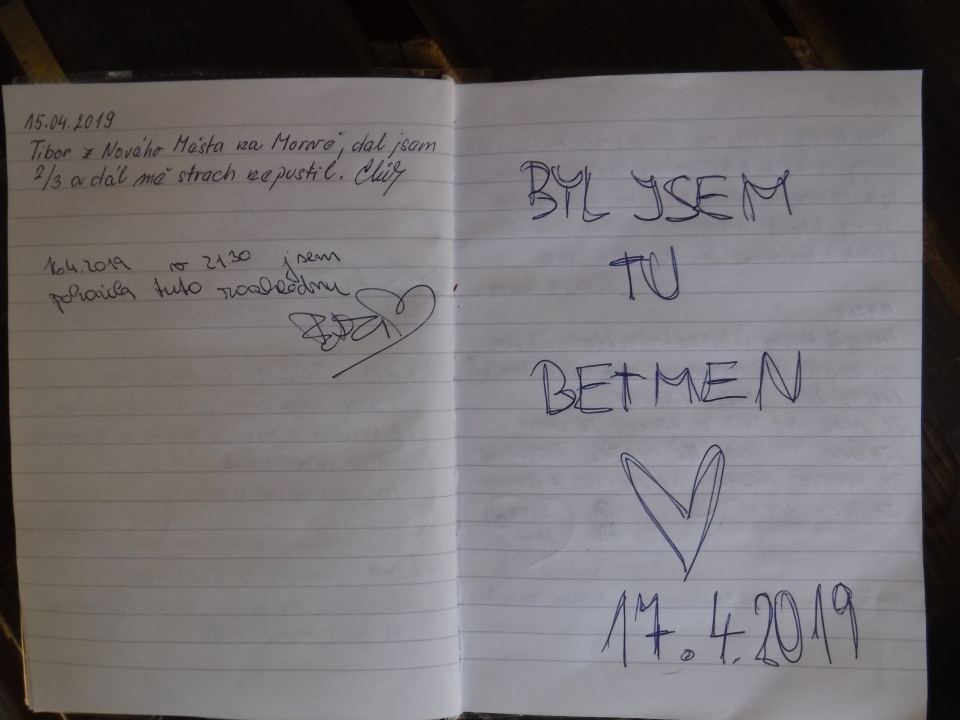 15.04.2019
Tibor z Nového Města na Moravě, dal jsem
2/3 a dál mě strach nepustil.
16.4.2019 v 21:30 jsem
pokořila tuto rozhlednu
BYL JSEM
TU
BETMEN
17.4.2019